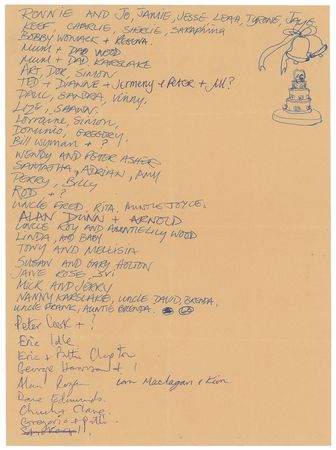 RONNIE AND JO, JAMIE, JESSE LEAH, TYRONE, JULIE
KEEF, CHARLIE, SHIRLIE, SERAPHINA
BOBBY WOMACK + REGINA.
MUM + DAD WOOD
MUM + DAD KARSLAKE
ART, DOR SIMON
TED + DIANNE + Jermeny + PETER + Jill?
PAUL, SANDRA, Vinny,
LIZE, SHAWN.
Lorraine, Simon,
Dominic, GREGORY.
Bill Wyman + ? !
WENDY AND PETER ASHER
SAMTATHA, ADRIAN, AMY
PERRY, BILLY
ROD + ?
UNCLE FRED, RITA. AUNTIE JOYCE.
ALAN DUNN + ARNOLD
UNCLE ROY AND AUNTIE LILY WOOD
LINDA, AND BABY
TONY AND MELLISIA
SUSAN AND GARY HOLTON
JANE ROSE, SVI
MICK AND JERRY
NANNY KARSLAKE, UNCLE DAVID, BRENDA.
UNCLE FRANK, AUNTIE BRENDA.
Peter Cook + ?
Eric Idle
Eric + Patti Clapton
George Harrison + !
Alan Rogan Ian Maclagan + Kim
Dave Edmunds.
Chuch + Clare.
Gregorio + Patti